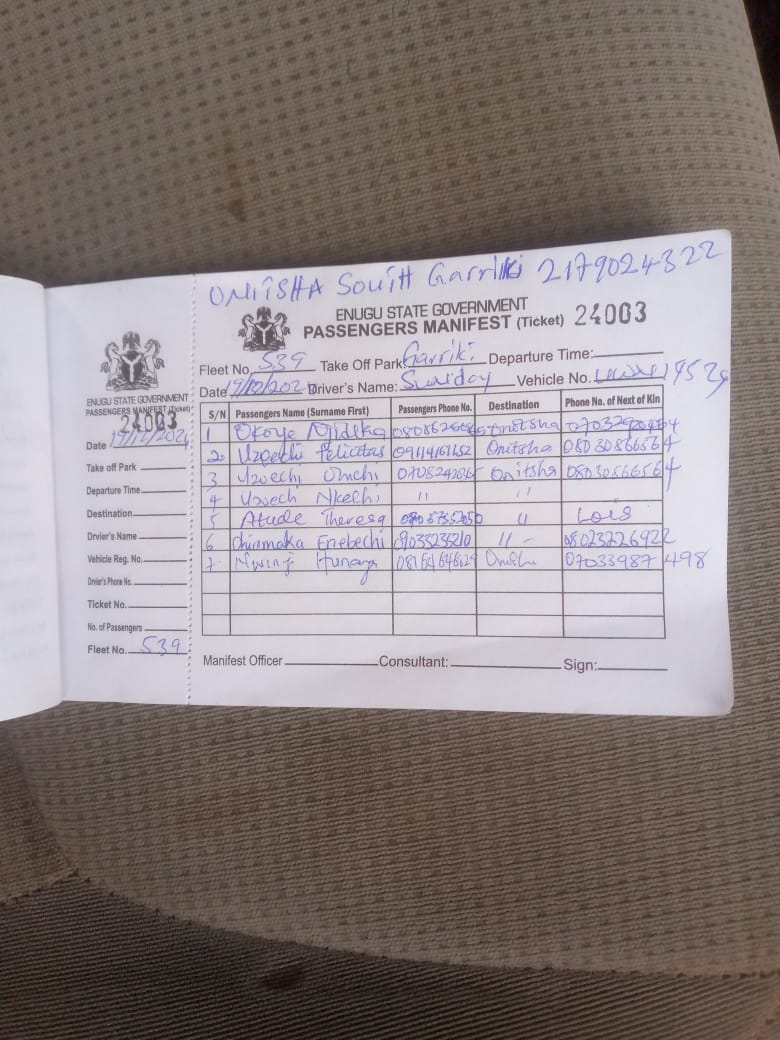 ONITSHA South Garriki 2179024322
ENUGU STATE GOVERNMENT
PASSENGERS MANIFEST (Ticket) 24003
Fleet No. 539 Take Off Park: Garriki Departure Time:
Date 19/12/202 Driver's Name: Sunday Vehicle No.
S/N Passengers Name (Surname First) Passengers Phone No. Destination Phone No. of Next of Kin
1 Okoye Njideka Onitsha
2 Uzoechi Felicitas 09114161652 Onitsha 08030866564
3 Uzoechi Onitsha 08030866564
4 Uzoech Nkechi " "
5 Atude Theresa " Lois
6 Chiamaka Enebechi 09033235210 " - 08023226922
7. 08164646629 07033987498
Manifest Officer Consultant: Sign:
ENUGU STATE GOVERNMENT
PASSENGERS MANIFEST (Ticket)
24003
Date 19/12/2024
Take off Park
Departure Time
Destination
Drvier's Name
Vehicle Reg. No.
Drvier's Phone No.
Ticket No.
No. of Passengers
Fleet No. 539